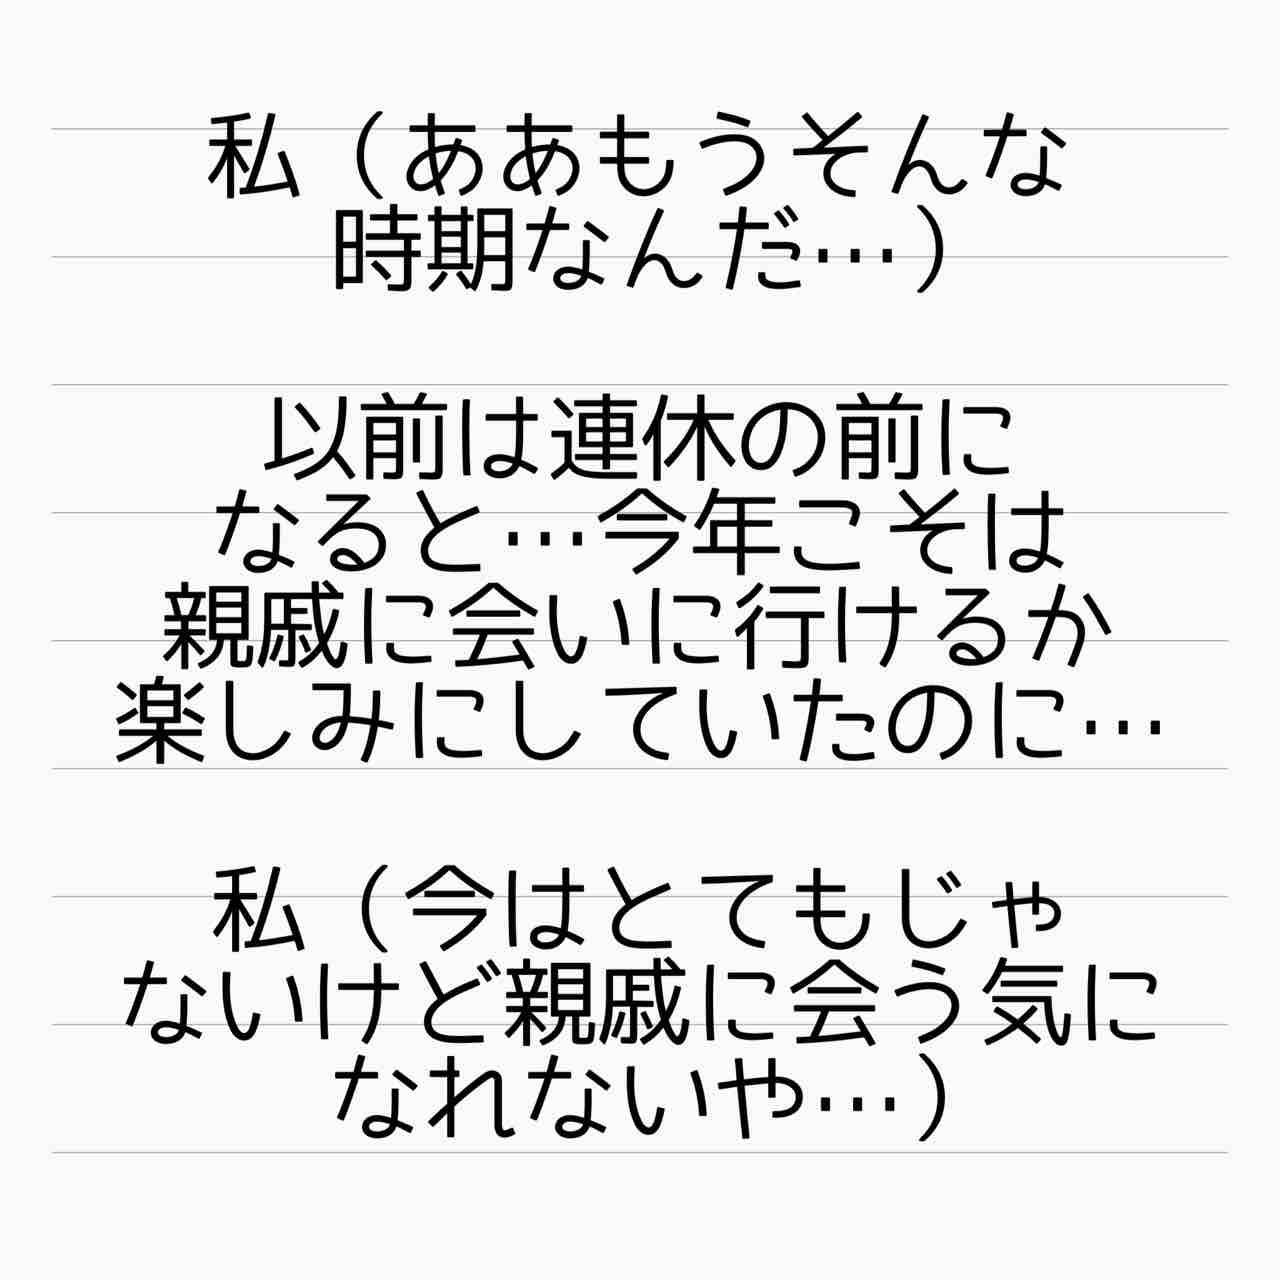 私（ああもうそんな
時期なんだ…）
以前は連休の前に
なると…今年こそは
親戚に会いに行けるか
楽しみにしていたのに…
私（今はとてもじゃ
ないけど親戚に会う気に
なれないや…）